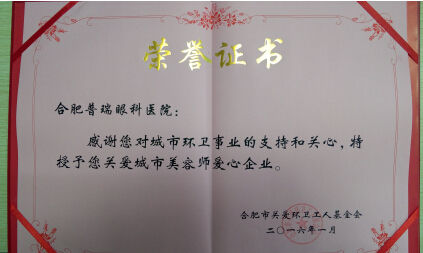 荣誉证书
合肥普瑞眼科医院：
感谢您对城市环卫事业的支持和关心，特
授予您关爱城市美容师爱心企业。
合肥市关爱环卫工人基金会
二〇一六年一月